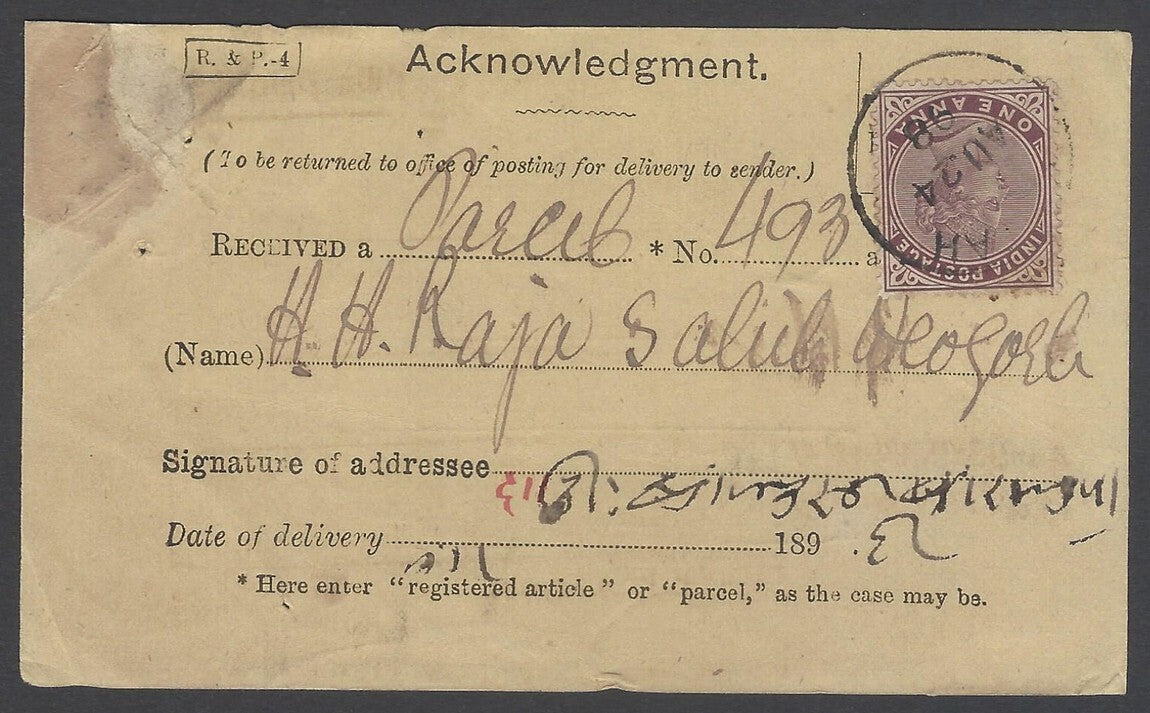 R. & P.-4
Acknowledgment.
(To be returned to office of posting for delivery to sender.)
RECEIVED a Parcel * No. 493 a
(Name) H. H. Raja Sahib Deogarh
Signature of addressee
Date of delivery 189
* Here enter "registered article" or "parcel," as the case may be.
INDIA POSTAGE
ONE ANNA
AU 24
98